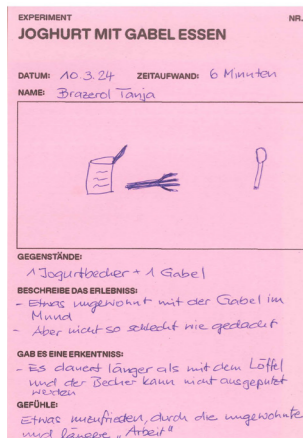 EXPERIMENT NR.
JOGHURT MIT GABEL ESSEN
DATUM: 10.3.24 ZEITAUFWAND: 6 Minuten
NAME: Brazerol Tanja
GEGENSTÄNDE:
1 Jogurtbecher + 1 Gabel
BESCHREIBE DAS ERLEBNISS:
- Etwas ungewohnt mit der Gabel im
Mund
- Aber nicht so schlecht wie gedacht
GAB ES EINE ERKENTNISS:
- Es dauert länger als mit dem Löffel
und der Becher kann nicht ausgeputzt
werden
GEFÜHLE:
Etwas unzufrieden, durch die ungewohnte
und längere „Arbeit"